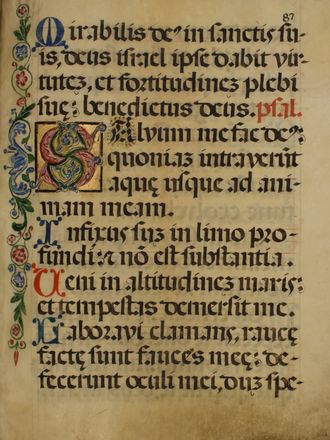 87
Mirabilis de⁹ in sanctis su-
is, deus israel ipse dabit vir-
tutez, et fortitudinez plebi
suę: benedictus deus. psal.
Salvum me fac de⁹:
quoniaz intraverūt
aquę usque ad ani-
mam meam.
Infixus suz in limo pro-
fundi: ⁊ nō est substantia.
Veni in altitudinez maris:
et tempestas demersit me.
Laboravi clamans, raucę
factę sunt fauces meę: de-
fecerunt oculi mei, duz spe-